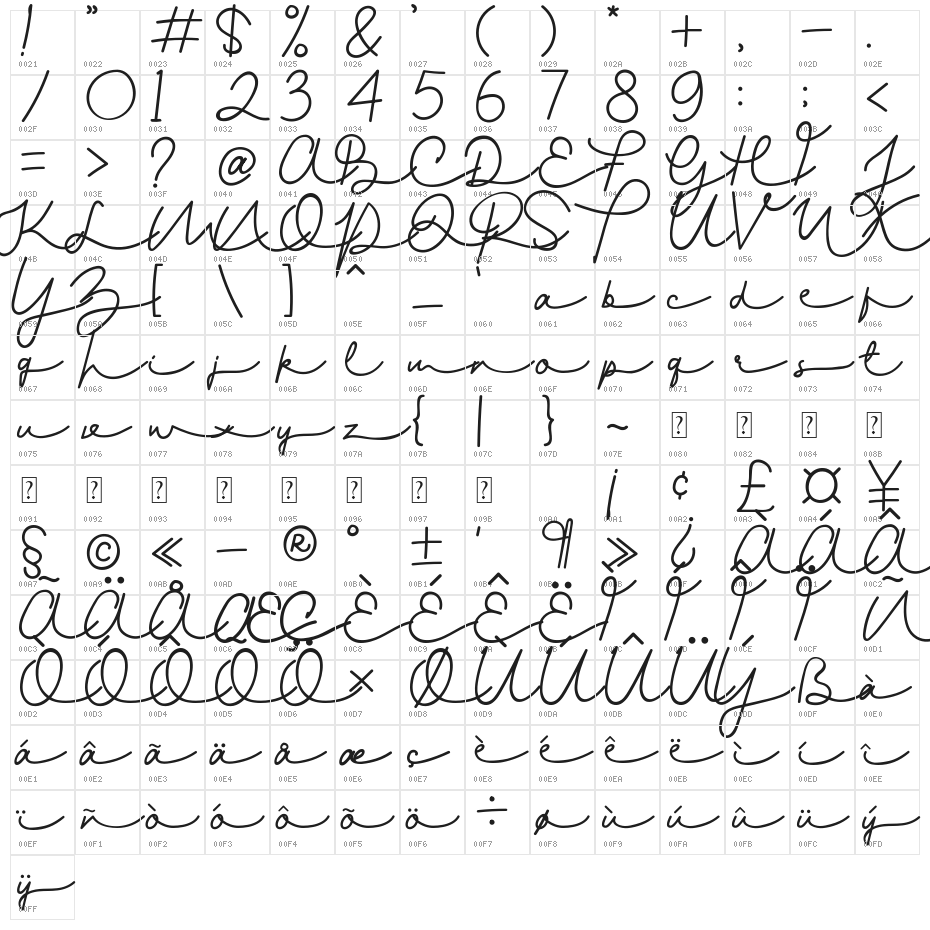 ! " # $ % & ' ( ) * + , - .
0021 0022 0023 0024 0025 0026 0027 0028 0029 002A 002B 002C 002D 002E
/ 0 1 2 3 4 5 6 7 8 9 : ; <
002F 0030 0031 0032 0033 0034 0035 0036 0037 0038 0039 003A 003B 003C
= > ? @ A B C D E F G H I J
003D 003E 003F 0040 0041 0042 0043 0044 0045 0046 0047 0048 0049 004A
K L M N O P Q R S T U V W X
004B 004C 004D 004E 004F 0050 0051 0052 0053 0054 0055 0056 0057 0058
Y Z [ \ ] ^ _ ` a b c d e f
0059 005A 005B 005C 005D 005E 005F 0060 0061 0062 0063 0064 0065 0066
g h i j k l m n o p q r s t
0067 0068 0069 006A 006B 006C 006D 006E 006F 0070 0071 0072 0073 0074
u v w x y z { | } ~ ? ? ? ?
0075 0076 0077 0078 0079 007A 007B 007C 007D 007E 0080 0082 0084 008B
? ? ? ? ? ? ? ? ¡ ¢ £ ¤ ¥
0091 0092 0093 0094 0095 0096 0097 009B 00A0 00A1 00A2 00A3 00A4 00A5
§ © « - ® ° ± ' ¶ » ¿ À Á Â
00A7 00A9 00AB 00AD 00AE 00B0 00B1 00B4 00B6 00BB 00BF 00C0 00C1 00C2
Ã Ä Å Æ Ç È É Ê Ë Ì Í Î Ï Ñ
00C3 00C4 00C5 00C6 00C7 00C8 00C9 00CA 00CB 00CC 00CD 00CE 00CF 00D1
Ò Ó Ô Õ Ö × Ø Ù Ú Û Ü Ý ß à
00D2 00D3 00D4 00D5 00D6 00D7 00D8 00D9 00DA 00DB 00DC 00DD 00DF 00E0
á â ã ä å æ ç è é ê ë ì í î
00E1 00E2 00E3 00E4 00E5 00E6 00E7 00E8 00E9 00EA 00EB 00EC 00ED 00EE
ï ñ ò ó ô õ ö ÷ ø ù ú û ü ý
00EF 00F1 00F2 00F3 00F4 00F5 00F6 00F7 00F8 00F9 00FA 00FB 00FC 00FD
ÿ
00FF